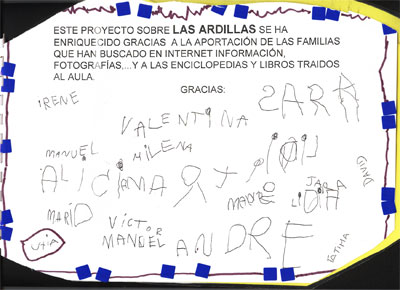 ESTE PROYECTO SOBRE LAS ARDILLAS SE HA
ENRIQUECIDO GRACIAS A LA APORTACIÓN DE LAS FAMILIAS
QUE HAN BUSCADO EN INTERNET INFORMACIÓN,
FOTOGRAFÍAS,...Y A LAS ENCICLOPEDIAS Y LIBROS TRAIDOS
AL AULA.
GRACIAS:
IRENE
SARA
VALENTINA
MANUEL
MILENA
DAVID
ALICIA
MARIO
VICTOR
MANUEL
ANDRE
FATIMA